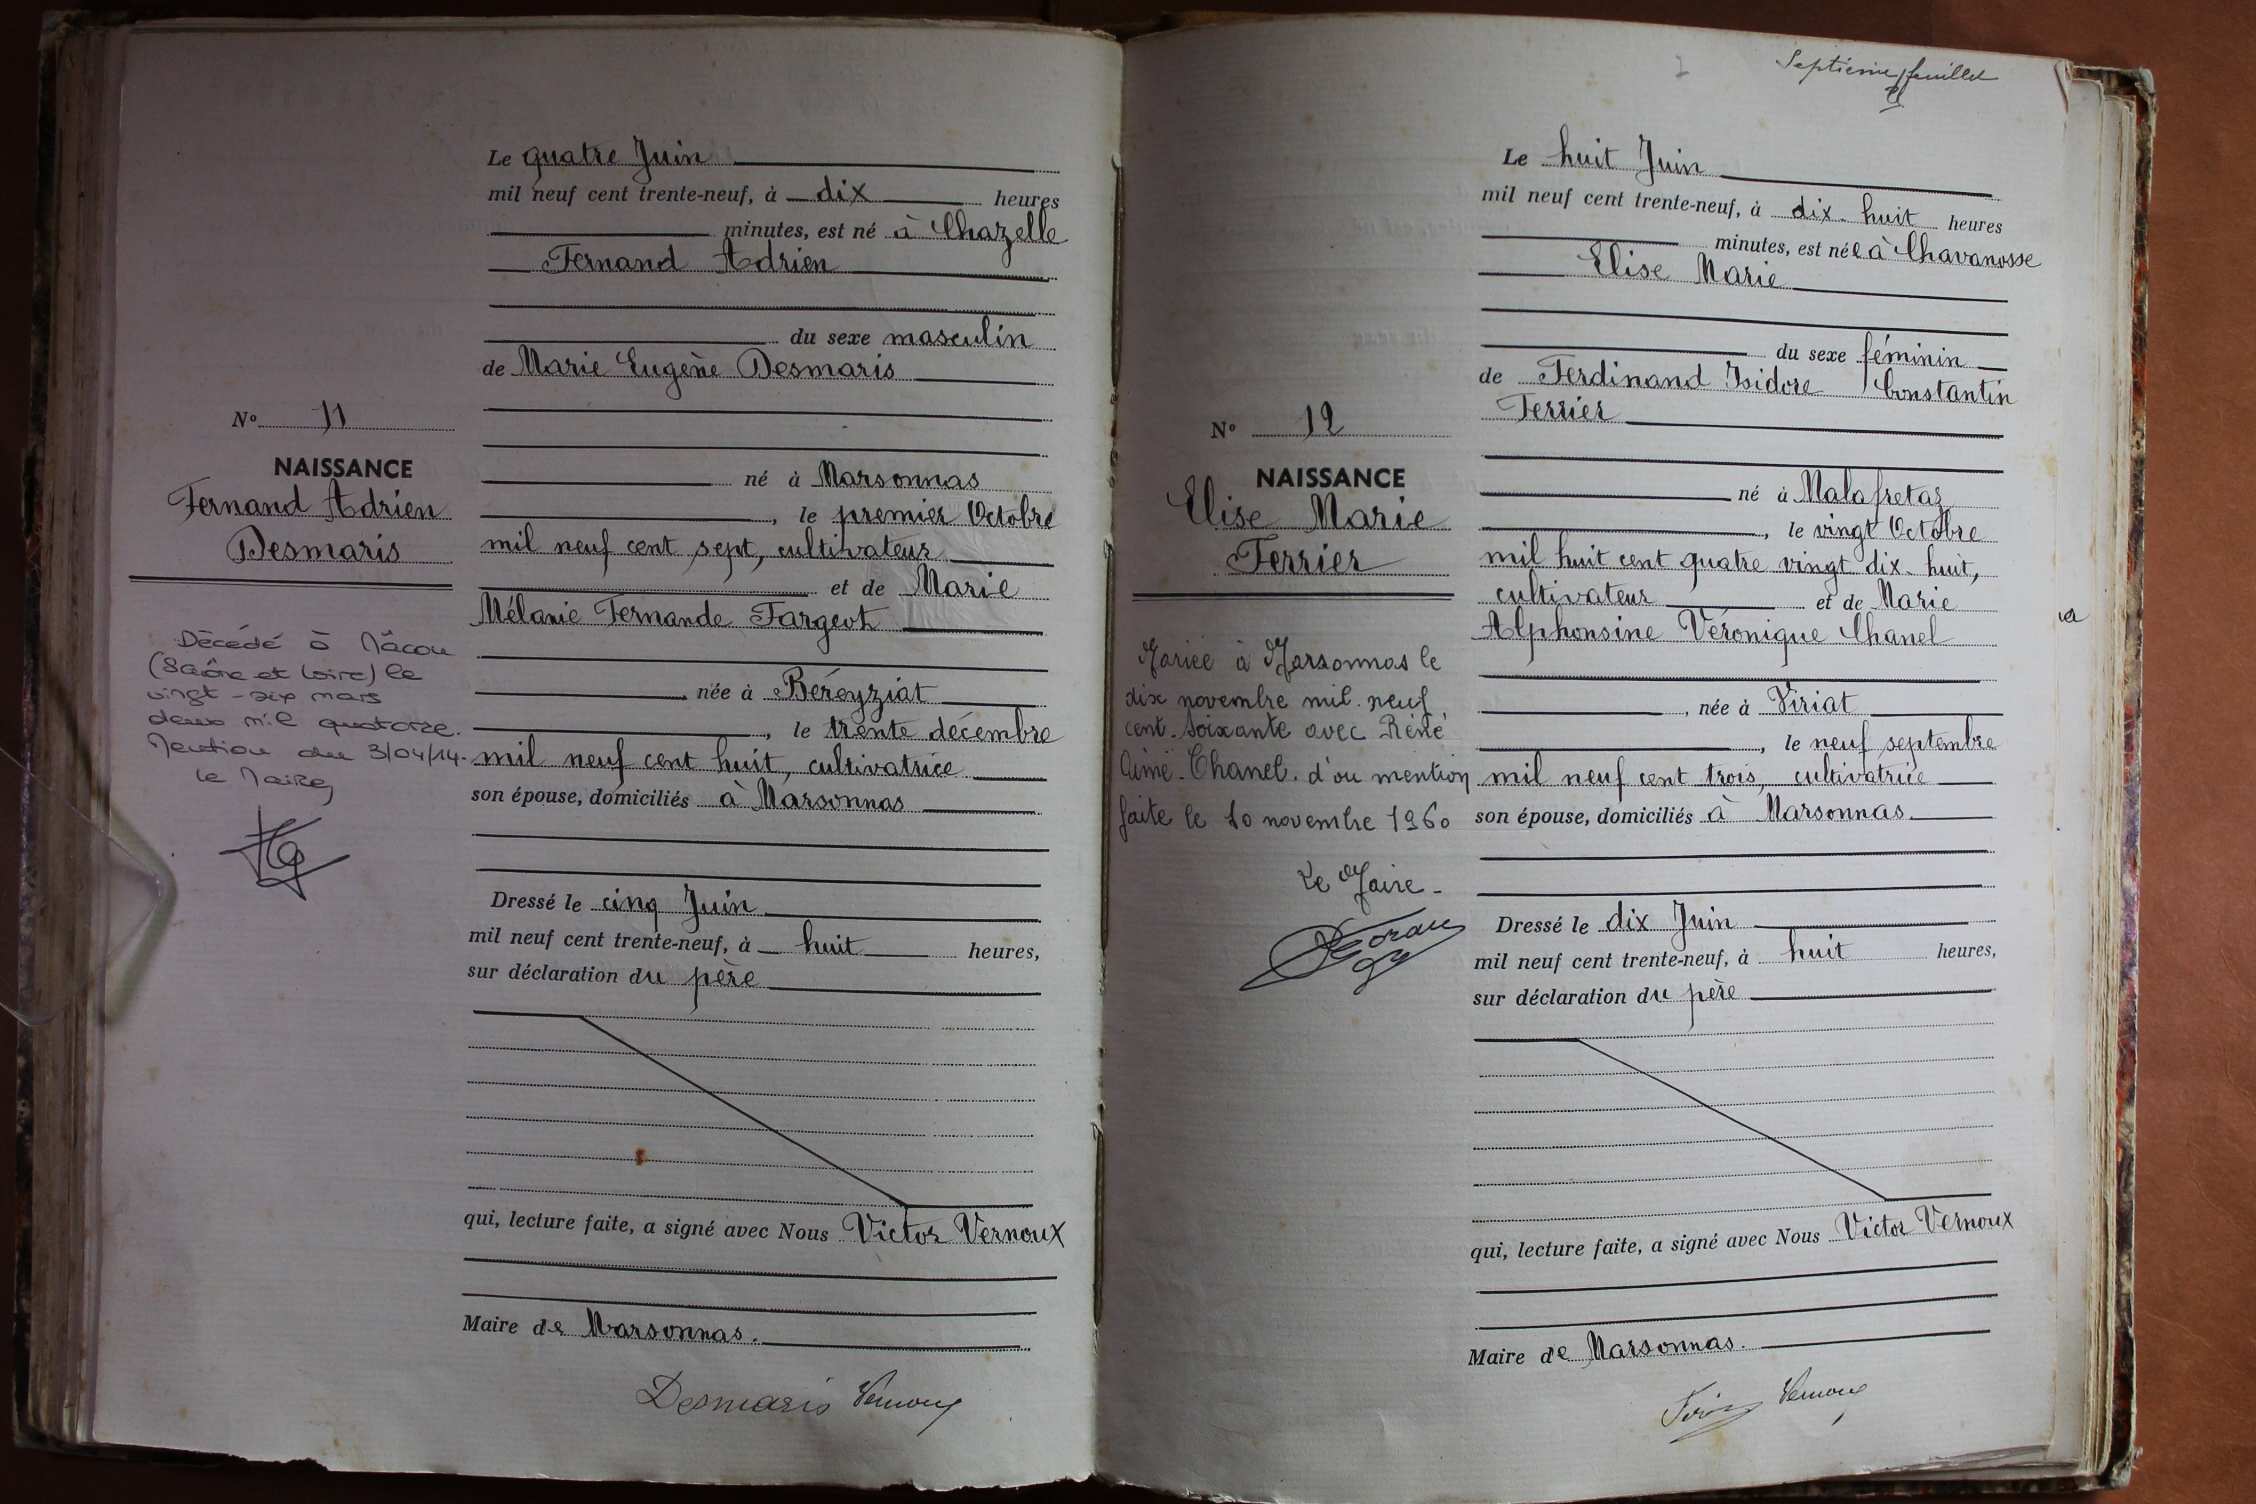 Le quatre Juin
mil neuf cent trente-neuf, à dix heures
minutes, est né à Chazelle
Fernand Adrien
du sexe masculin
de Marie Eugène Desmaris
né à Marsonnas
, le premier Octobre
mil neuf cent sept, cultivateur
et de Marie
Mélanie Fernande Fargeot
née à Béreyziat
, le trente décembre
mil neuf cent huit, cultivatrice
son épouse, domiciliés à Marsonnas
Dressé le cinq Juin
mil neuf cent trente-neuf, à huit heures,
sur déclaration du père
qui, lecture faite, a signé avec Nous Victor Vernoux
Maire de Marsonnas.
Desmaris Vernoux
N° 11
NAISSANCE
Fernand Adrien
Desmaris
Décédé à Mâcon
(Saône et Loire) le
vingt-six mars
deux mil quatorze.
Mention du 3/04/14.
Le Maire,
Septième feuillet
Le huit Juin
mil neuf cent trente-neuf, à dix-huit heures
minutes, est née à Chavanosse
Elise Marie
du sexe féminin
de Ferdinand Isidore Constantin
Ferrier
né à Malafretaz
, le vingt Octobre
mil huit cent quatre vingt dix-huit,
cultivateur et de Marie
Alphonsine Véronique Chanel
née à Viriat
, le neuf septembre
mil neuf cent trois, cultivatrice
son épouse, domiciliés à Marsonnas
Dressé le dix Juin
mil neuf cent trente-neuf, à huit heures,
sur déclaration du père
qui, lecture faite, a signé avec Nous Victor Vernoux
Maire de Marsonnas.
Vernoux
N° 12
NAISSANCE
Elise Marie
Ferrier
Mariée à Marsonnas le
dix novembre mil neuf
cent soixante avec Réné
Aimé Chanel. d'où mention
faite le 10 novembre 1960
Le Maire